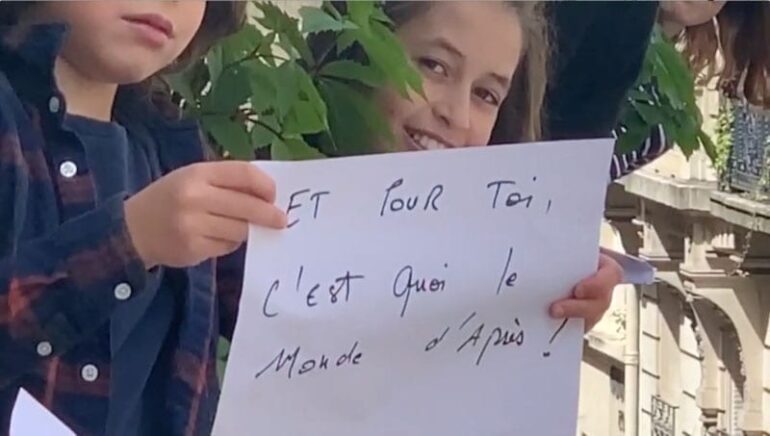 ET POUR Toi,
C'EST Quoi le
Monde d'Après !